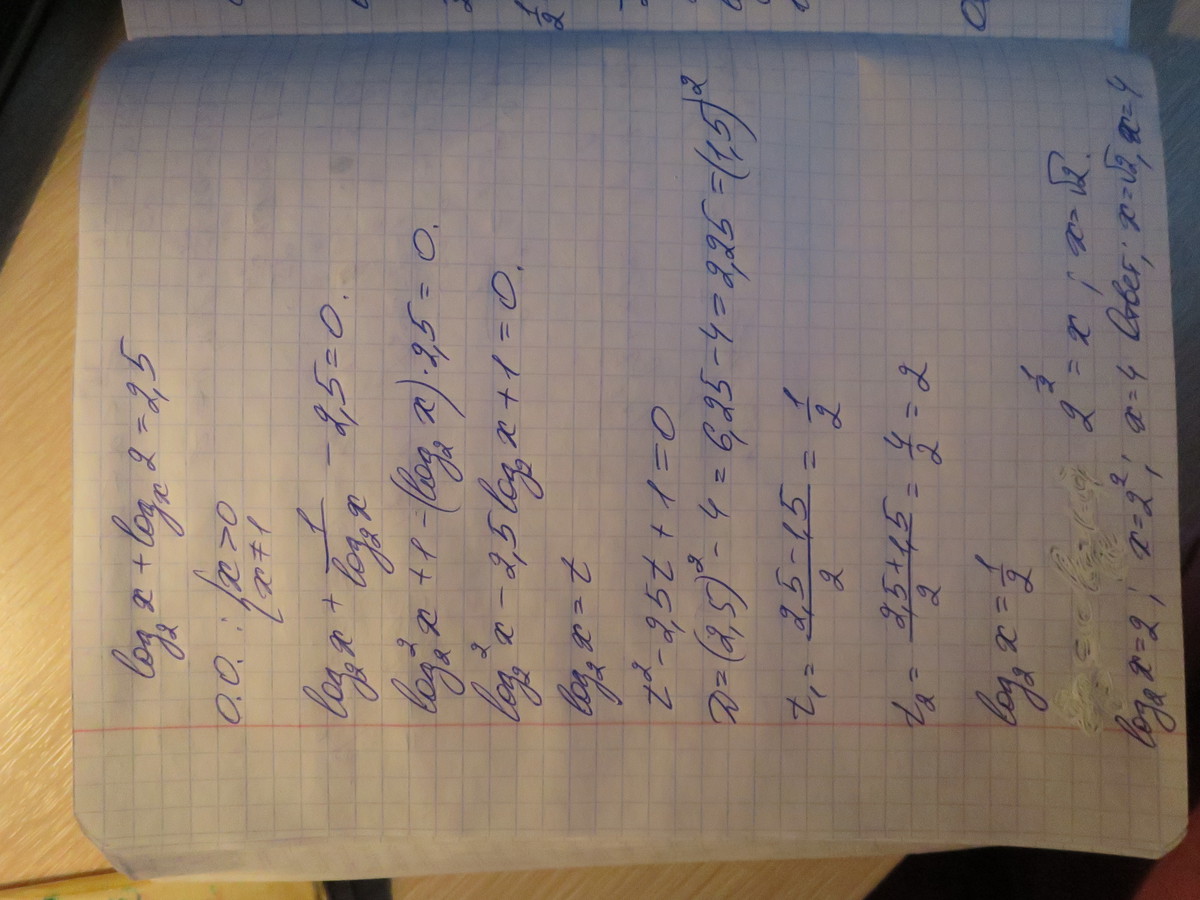 log₂ x + logₓ 2 = 2,5
О.О.: { x > 0
x ≠ 1
log₂ x + 1/log₂ x − 2,5 = 0.
log₂² x + 1 − (log₂ x) · 2,5 = 0.
log₂² x − 2,5 log₂ x + 1 = 0.
log₂ x = t
t² − 2,5t + 1 = 0
D = (2,5)² − 4 = 6,25 − 4 = 2,25 = (1,5)²
t₁ = (2,5 − 1,5)/2 = 1/2
t₂ = (2,5 + 1,5)/2 = 4/2 = 2
log₂ x = 1/2
2^(1/2) = x ; x = √2.
log₂ x = 2 ; x = 2² ; x = 4 Ответ ; x = √2, x = 4